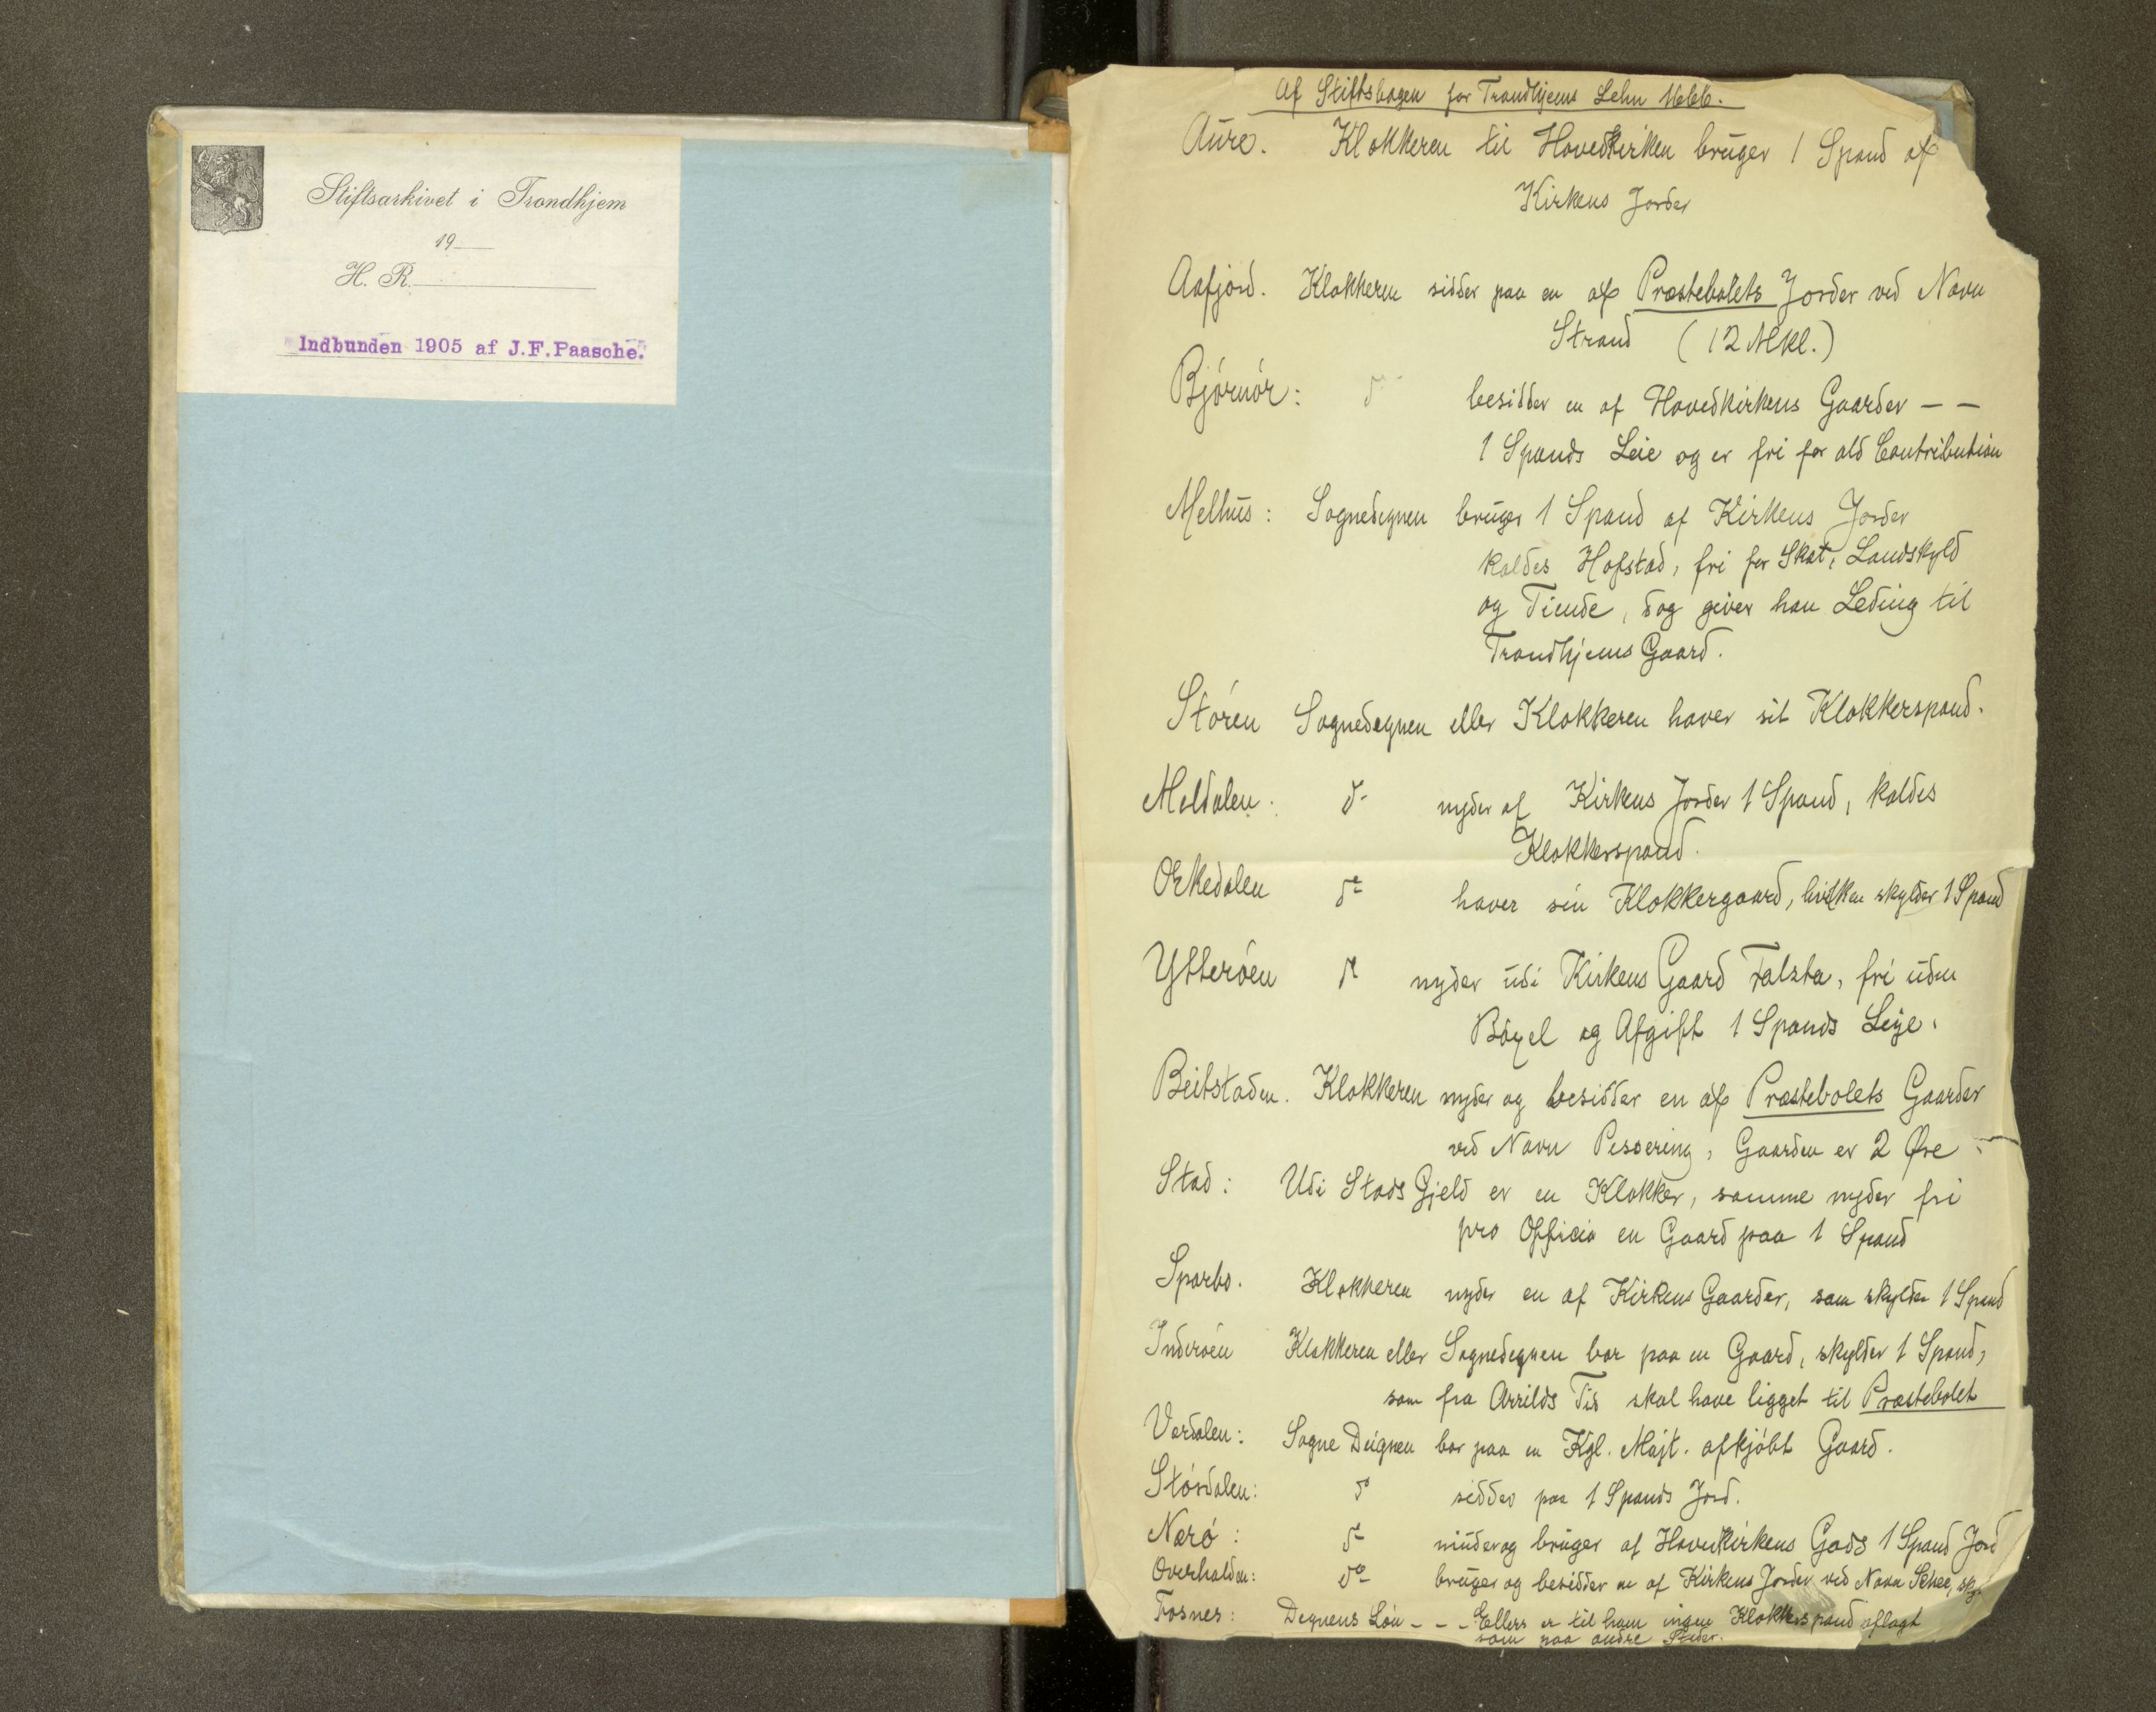 Stiftsarkivet i Trondhjem
19
H. R.
Indbunden 1905 af J.F.Paasche.
Af Stiftsbogen for Trondhjems Lehn
Aure. Klokkeren til Hovedkirken bruger 1 Spand af
Kirkens Jorder
Aafjord. Klokkeren sidder paa en af Præstebolets Jorder ved Navn
Strand (12 Mkl.)
Bjórnór: d besidder en af Hovedkirkens Gaarder - -
1 Spands Leie og er fri for ald Contribution
Melhus: Sognedegnen bruger 1 Spand af Kirkens Jorder
kaldes Hofstad, fri for Skat, Landskyld
og Tiende, dog giver han Leding til
Trondhjems Gaard.
Stóren Sognedegnen eller Klokkeren haver sit Klokkerspand.
Meldalen. do nyder af Kirkens Jorder 1 Spand, kaldes
Klokkerspand.
Orkedalen do haver sin Klokkergaard, hvilken skylder 1 Spand
Ytteróen do nyder udi Kirkens Gaard Falsta, fri uden
Bóxel og Afgift 1 Spands Leje.
Beitstaden. Klokkeren nyder og besidder en af Præstebolets Gaarder
ved Navn Pessering, Gaarden er 2 Øre
Stod: Udi Stods Gjeld er en Klokker, samme nyder fri
pro Officio en Gaard paa 1 Spand
Sparbo. Klokkeren nyder en af Kirkens Gaarder, som skylder 1 Spand
Inderóen Klokkeren eller Sognedegnen bor paa en Gaard, skylder 1 Spand,
som fra Arrilds Tid skal have ligget til Præstebolet
Værdalen: Sogne Deignen bor paa en Kgl. Majt. afkjóbt Gaard.
Stórdalen: do sidder paa 1 Spands Jord.
Næró: do niuder og bruger af Hovedkirkens Gods 1 Spand Jord
Overhalden: do bruger og besidder en af Kirkens Jorder ved Navn
Fosnes: Degnens Lón - - - Ellers er til ham ingen Klokkerspand aflagt
som paa andre Steder.